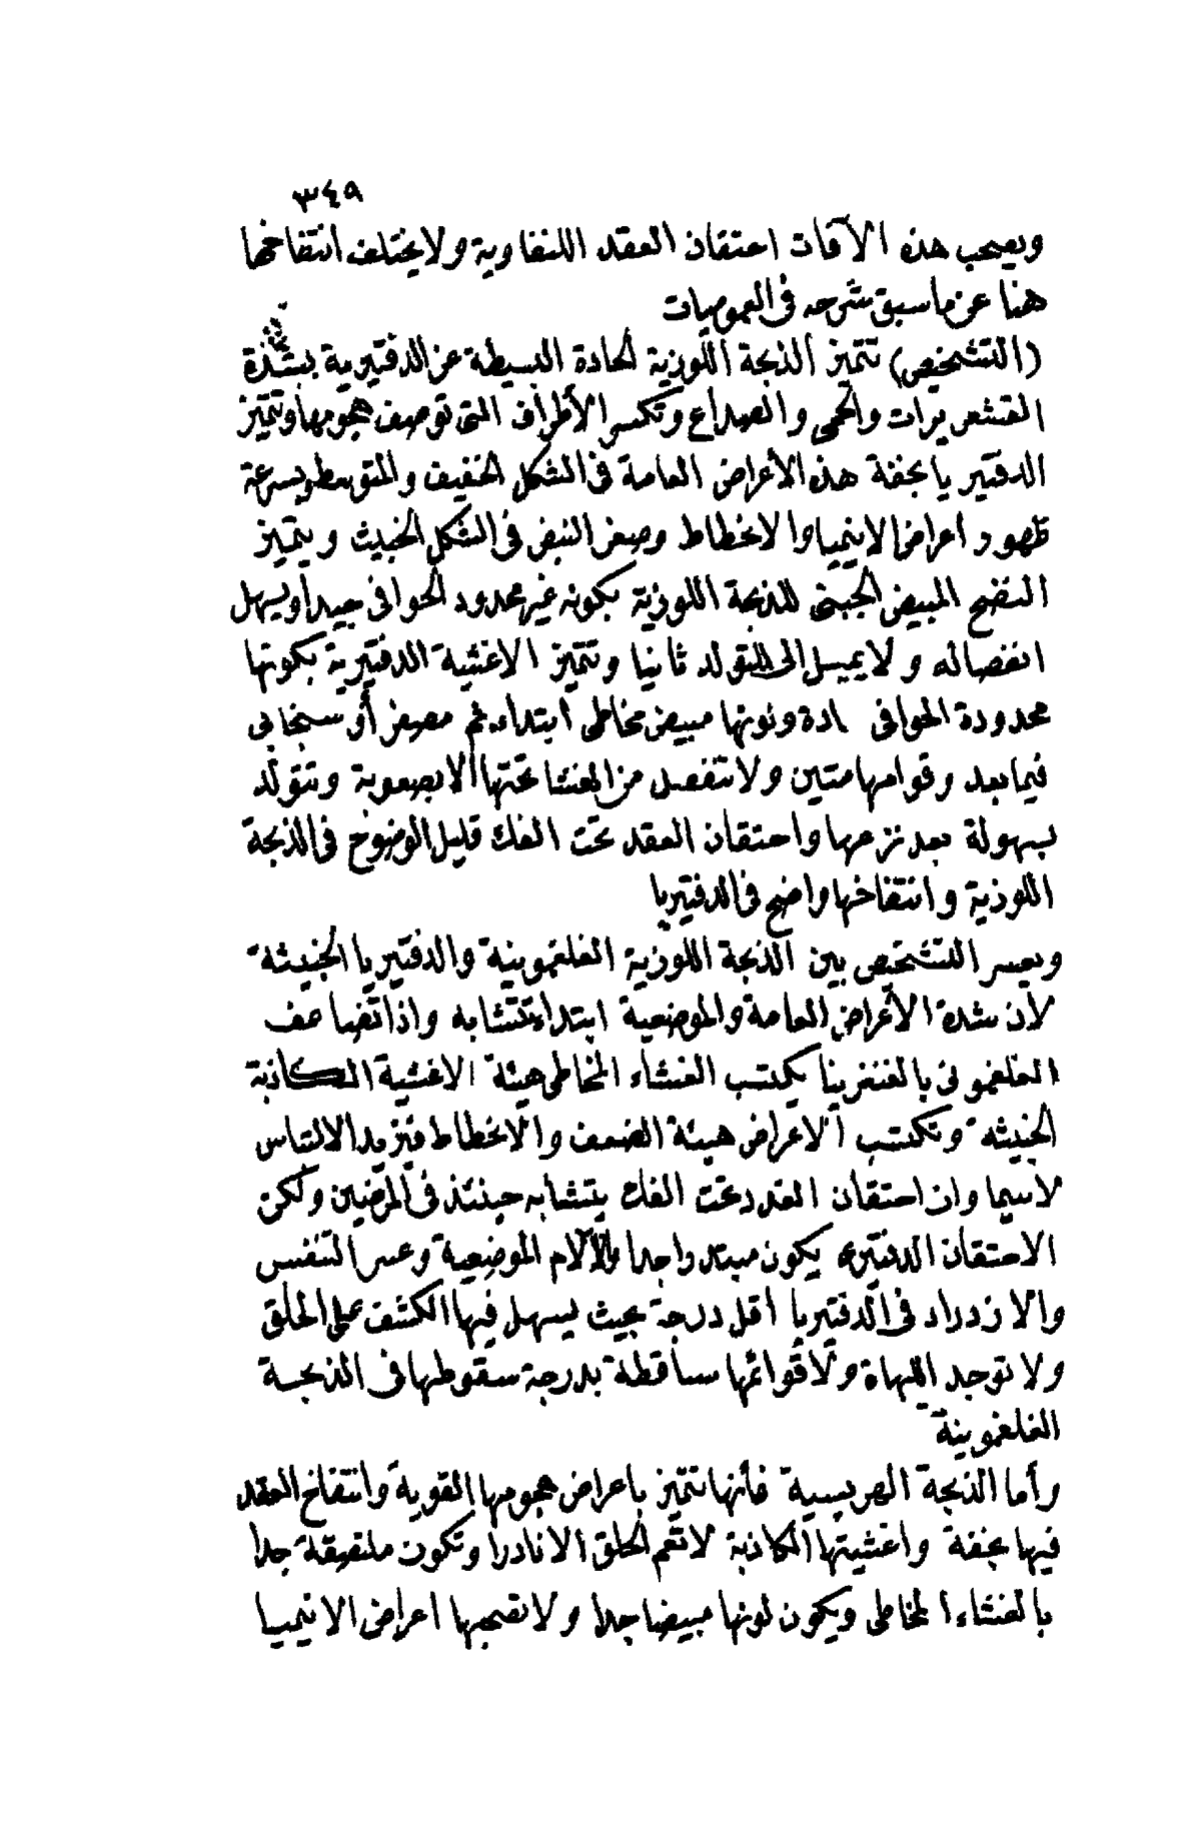 ٣٤٩
ويصحب هذه الآفات احتقان العقد اللنفاوية ولا يختلف انتفاخها
هنا عن ما سبق شرحه فى العموميات
(التشخيص) تتميز الذبحة اللوزية الحادة البسيطة عن الدفتيرية بشدة
القشعريرات والحمى والصداع وتكسر الأطراف التى توصف هجومها وتتميز
الدفتيريا بخفة هذه الأعراض العامة فى الشكل الخفيف والمتوسط وبسرعة
ظهور اعراض الاينميا والانحطاط وصغر النبض فى الشكل الخبيث ويتميز
النضح المبيض الجبنى للذبحة اللوزية بكونه غير محدود الحوافى جيدا ويسهل
انفصاله ولا يميل الى التولد ثانيا وتتميز الاغشية الدفتيرية بكونها
محدودة الحوافى ادة ولونها مبيض مخاطى ابتداء ثم مصفر أو سنجابى
فيما بعد وقوامها متين ولا تنفصل من الغشا تحتها الا بصعوبة وتتولد
بسهولة بعد نزعها واحتقان العقد تحت الفك قليل الوضوح فى الذبحة
اللوذية وانتفاخها واضح فى الدفتيريا
ويعسر التشخيص بين الذبحة اللوزية الفلغمونية والدفتيريا الخبيثة
لأن شدة الأعراض العامة والموضعية ابتداء تتشابه واذا تضاعف
الفلغمونى بالغنغرينا يكتسب الغشاء المخاطى هيئة الاغشية الكاذبة
الخبيثه وتكتسب الاعراض هيئة الضعف والانحطاط فيزيد الالتباس
لاسيما وان احتقان العقد تحت الفك يتشابه حينئذ فى المرضين ولكن
الاحتقان الدفتيرى يكون مبتدر واجدا والآلام الموضعية وعسر التنفس
والازدراد فى الدفتيريا اقل درجة بحيث يسهل فيها الكشف على الحلق
ولا توجد اللهاة ولا قوائمها ساقطة بدرجة سقوطها فى الذبحة
الفلغمونية
وأما الذبحة الهربسية فأنها تتميز باعراض هجومها القوية وانتفاخ العقد
فيها بخفة واغشيتها الكاذبة لا تعم الحلق الا نادرا وتكون ملتصقة جدا
بالغشاء المخاطى ويكون لونها مبيضا جدا ولا تصحبها اعراض الاينميا